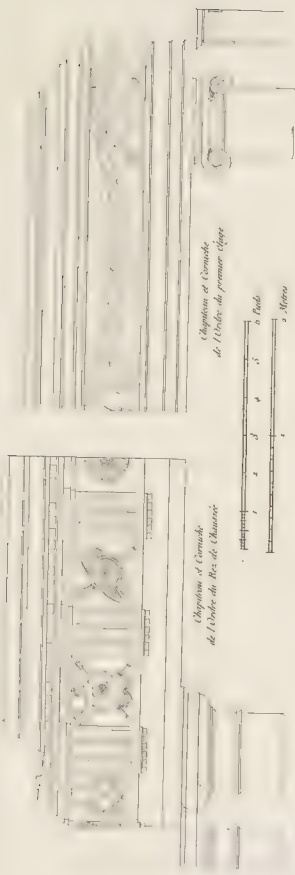 Chapiteau et Corniche
de l'Ordre du Rez de Chaussée
Chapiteau et Corniche
de l'Ordre du premier étage
1 2 3 4 5 6 Pieds
1 2 Mètres